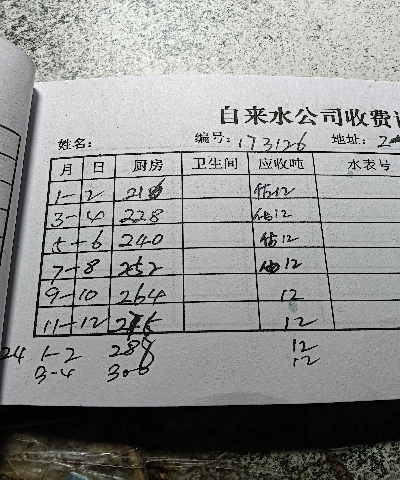 自来水公司收费
姓名: 编号: 173126 地址: 2
月 日 厨房 卫生间 应收吨 水表号
1-2 216 估12
3-4 228 估12
5-6 240 估12
7-8 252 估12
9-10 264 12
11-12 276 12
24 1-2 288 12
3-4 300 12